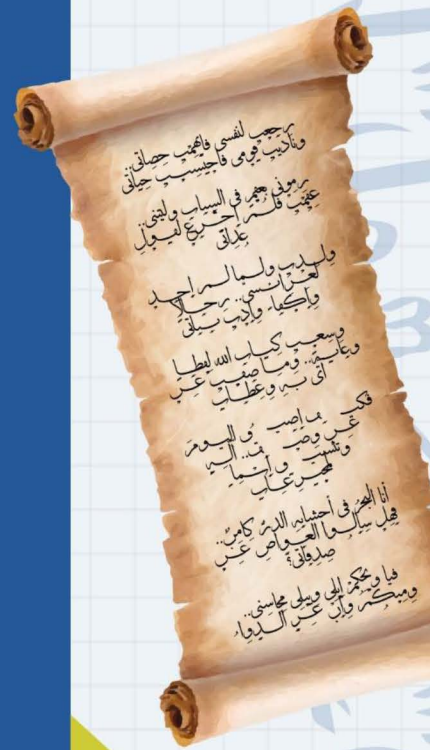 رجعت لنفسي فاتهمت حصاتي
وناديت قومي فاحتسبت حياتي
رموني بعقم في الشباب وليتني..
عقمت فلم أجزع لقول
عداتي
ولدت ولما لم أجد
لعرائسي.. رجالا
وأكفاء وأدت بناتي
وسعت كتاب الله لفظا
وغاية.. وما ضقت عن
آي به وعظات
اليوم
عن
أنا البحر في أحشائه الدر كامن..
فهل سألوا الغواص عن
صدفاتي؟
فيا ويحكم أبلى وتبلى محاسني..
ومنكم وإن عز الدواء